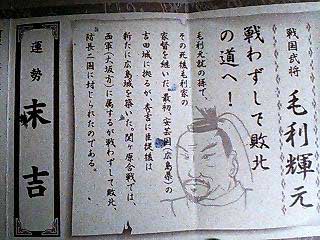 戦国武将 毛利輝元
戦わずして敗北
の道へ！
毛利元就の孫で、
その死後毛利家の
家督を継いだ。最初、安芸国（広島県）の
吉田城に拠るが、秀吉に臣従後は
新たに広島城を築いた。関ヶ原合戦では、
西軍（大坂方）に属するが戦わずして敗北、
防長二国に封じられたのである。
運勢 末吉